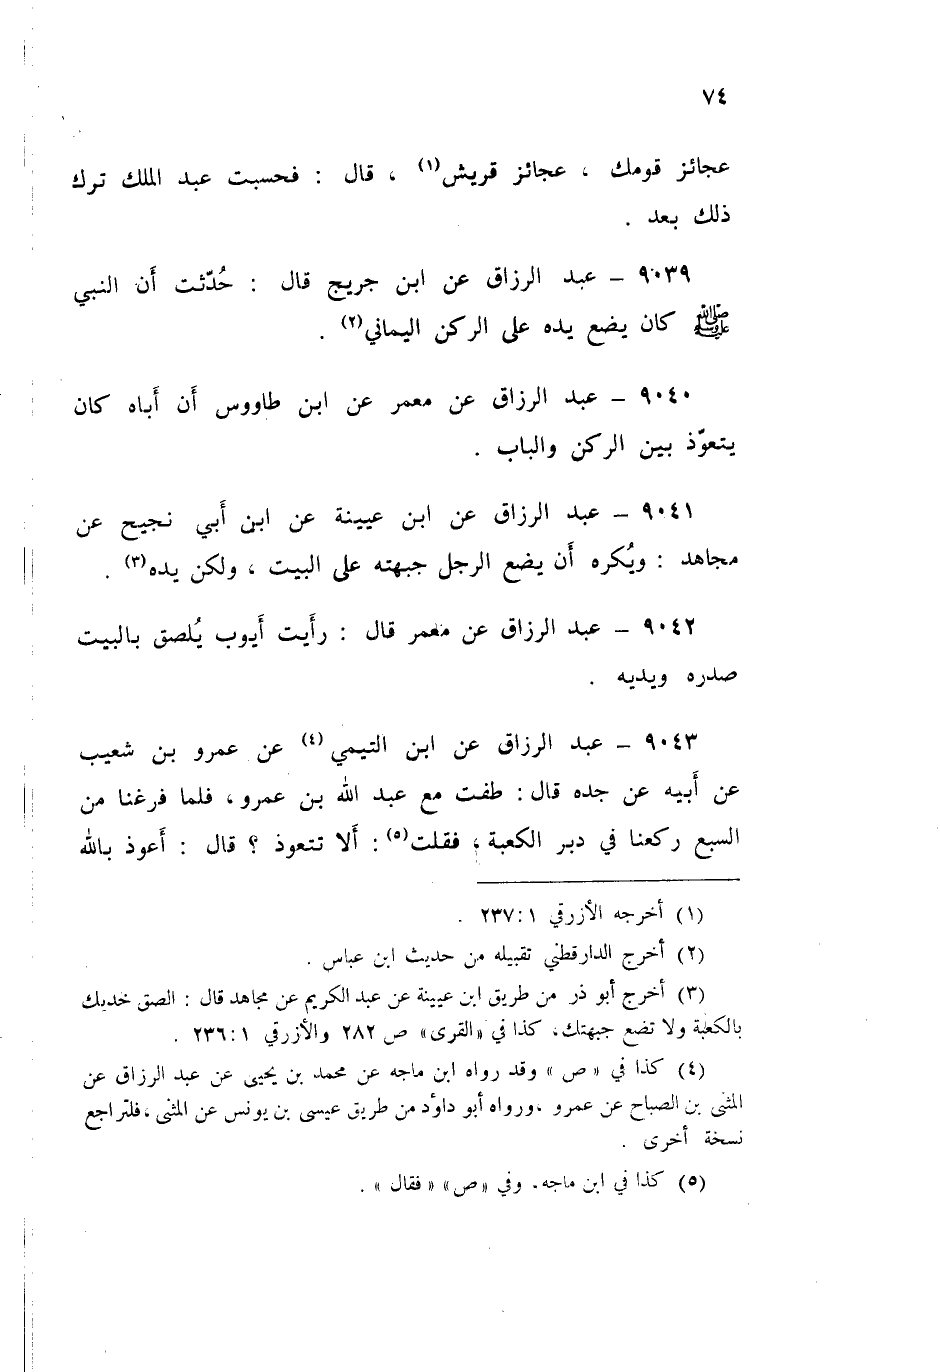 ٧٤
عجائز قومك ، عجائز قريش(١) ، قال : فحسبت عبد الملك ترك
ذلك بعد .
٩٠٣٩ – عبد الرزاق عن ابن جريج قال : حُدّثت أن النبي
ﷺ كان يضع يده على الركن اليماني(٢) .
٩٠٤٠ – عبد الرزاق عن معمر عن ابن طاووس أن أباه كان
يتعوّذ بين الركن والباب .
٩٠٤١ – عبد الرزاق عن ابن عيينة عن ابن أبي نجيح عن
مجاهد : ويُكره أن يضع الرجل جبهته على البيت ، ولكن يده(٣) .
٩٠٤٢ – عبد الرزاق عن معمر قال : رأيت أيوب يُلصق بالبيت
صدره ويديه .
٩٠٤٣ – عبد الرزاق عن ابن التيمي(٤) عن عمرو بن شعيب
عن أبيه عن جده قال : طفت مع عبد الله بن عمرو، فلما فرغنا من
السبع ركعنا في دبر الكعبة ، فقلت(٥) : ألا تتعوذ ؟ قال : أعوذ بالله
(١) أخرجه الأزرقي ١ : ٢٣٧ .
(٢) أخرج الدارقطني تقبيله من حديث ابن عباس .
(٣) أخرج أبو ذر من طريق ابن عيينة عن عبد الكريم عن مجاهد قال : الصق خديك
بالكعبة ولا تضع جبهتك، كذا في «القرى» ص ٢٨٢ والأزرقي ١ : ٢٣٦ .
(٤) كذا في « ص » وقد رواه ابن ماجه عن محمد بن يحيى عن عبد الرزاق عن
المثنى بن الصباح عن عمرو ، ورواه أبو داود من طريق عيسى بن يونس عن المثنى ، فلتراجع
نسخة أخرى .
(٥) كذا في ابن ماجه. وفي «ص» « فقال » .